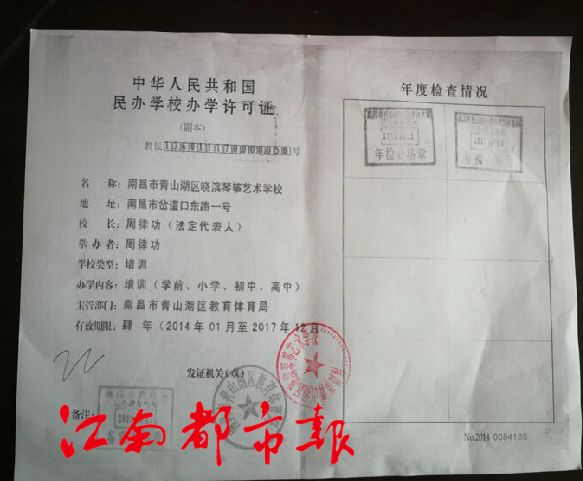 中华人民共和国
民办学校办学许可证
(副本)
教民
号
名 称: 南昌市青山湖区晓滨琴筝艺术学校
地 址: 南昌市岔道口东路一号
校 长: 周律功 (法定代表人)
举 办 者: 周律功
学校类型: 培训
办学内容: 培训 (学前、小学、初中、高中)
主管部门: 南昌市青山湖区教育体育局
有效期限: 肆 年 (2014 年 01 月至 2017 年 12 月
发证机关(章)
备注:
江南都市报
年度检查情况
年检合格章
No.2014 0084180